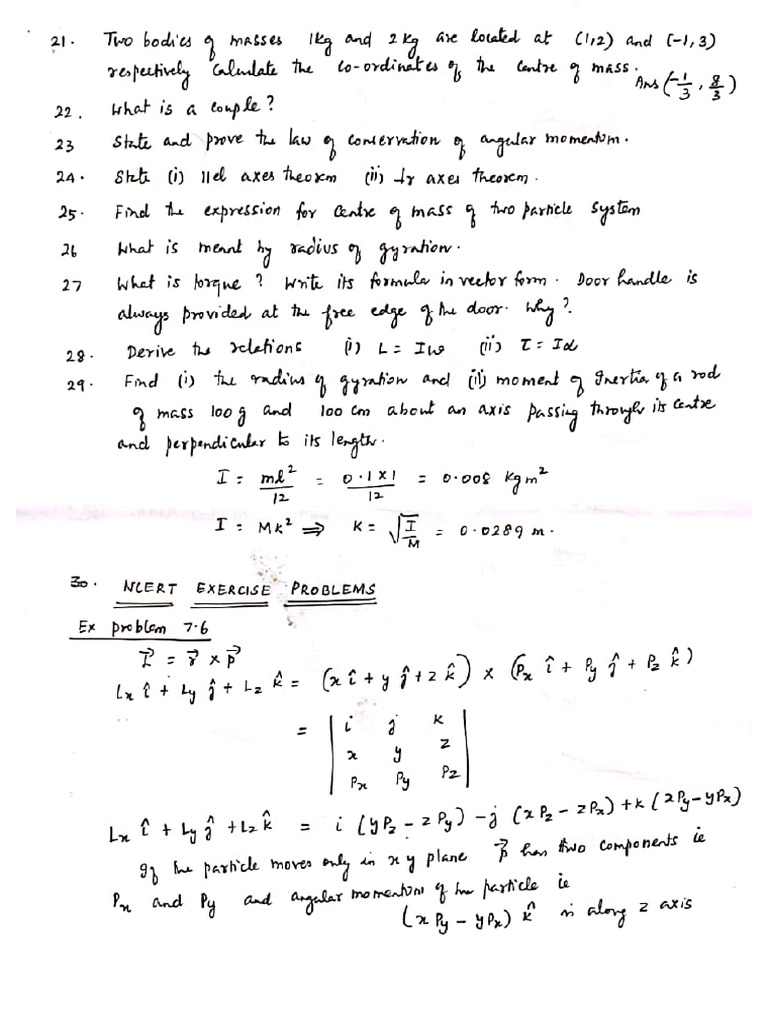 21. Two bodies of masses 1kg and 2kg are located at (1,2) and (-1,3)
respectively Calculate the co-ordinates of the centre of mass.
Ans (-1/3, 8/3)
22. What is a couple?
23 State and prove the law of conservation of angular momentum.
24. State (i) llel axes theorem (ii) ⊥r axes theorem.
25. Find the expression for centre of mass of two particle system
26 What is meant by radius of gyration.
27 What is torque? Write its formula in vector form. Door handle is
always provided at the free edge of the door. Why?
28. Derive the relations (i) L = Iω (ii) τ = Iα
29. Find (i) the radius of gyration and (ii) moment of Inertia of a rod
of mass 100g and 100 cm about an axis passing through its centre
and perpendicular to its length.
I = ml²/12 = 0.1×1/12 = 0.008 kgm²
I = MK² ⟹ K = √(I/M) = 0.0289 m.
30. NCERT EXERCISE PROBLEMS
Ex problem 7.6
L⃗ = r⃗ × p⃗
Lx î + Ly ĵ + Lz k̂ = (x î + y ĵ + z k̂) × (Px î + Py ĵ + Pz k̂)
= | i j k |
| x y z |
| Px Py Pz |
Lx î + Ly ĵ + Lz k̂ = i (yPz - zPy) - j (xPz - zPx) + k (xPy - yPx)
If the particle moves only in x y plane p⃗ has two components ie
Px and Py and angular momentum of the particle ie
(xPy - yPx) k̂ is along z axis